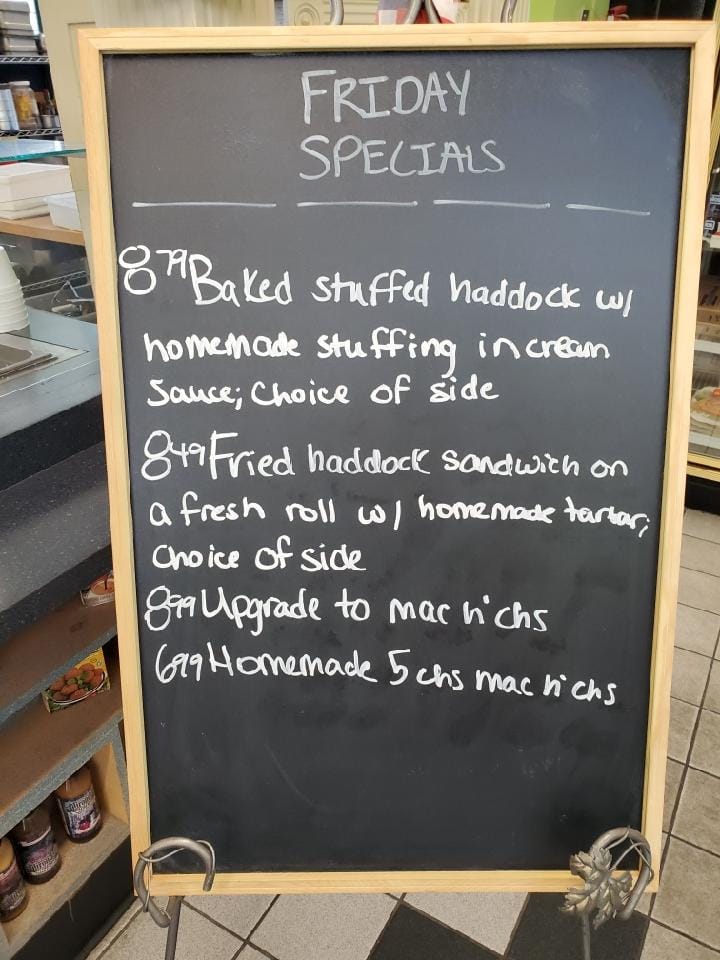 FRIDAY
SPECIALS
8 79 Baked stuffed haddock w/
homemade stuffing in cream
Sauce; Choice of side
8 49 Fried haddock sandwich on
a fresh roll w/ homemade tartar;
Choice of side
8 99 Upgrade to mac n' chs
6 99 Homemade 5 chs mac n' chs